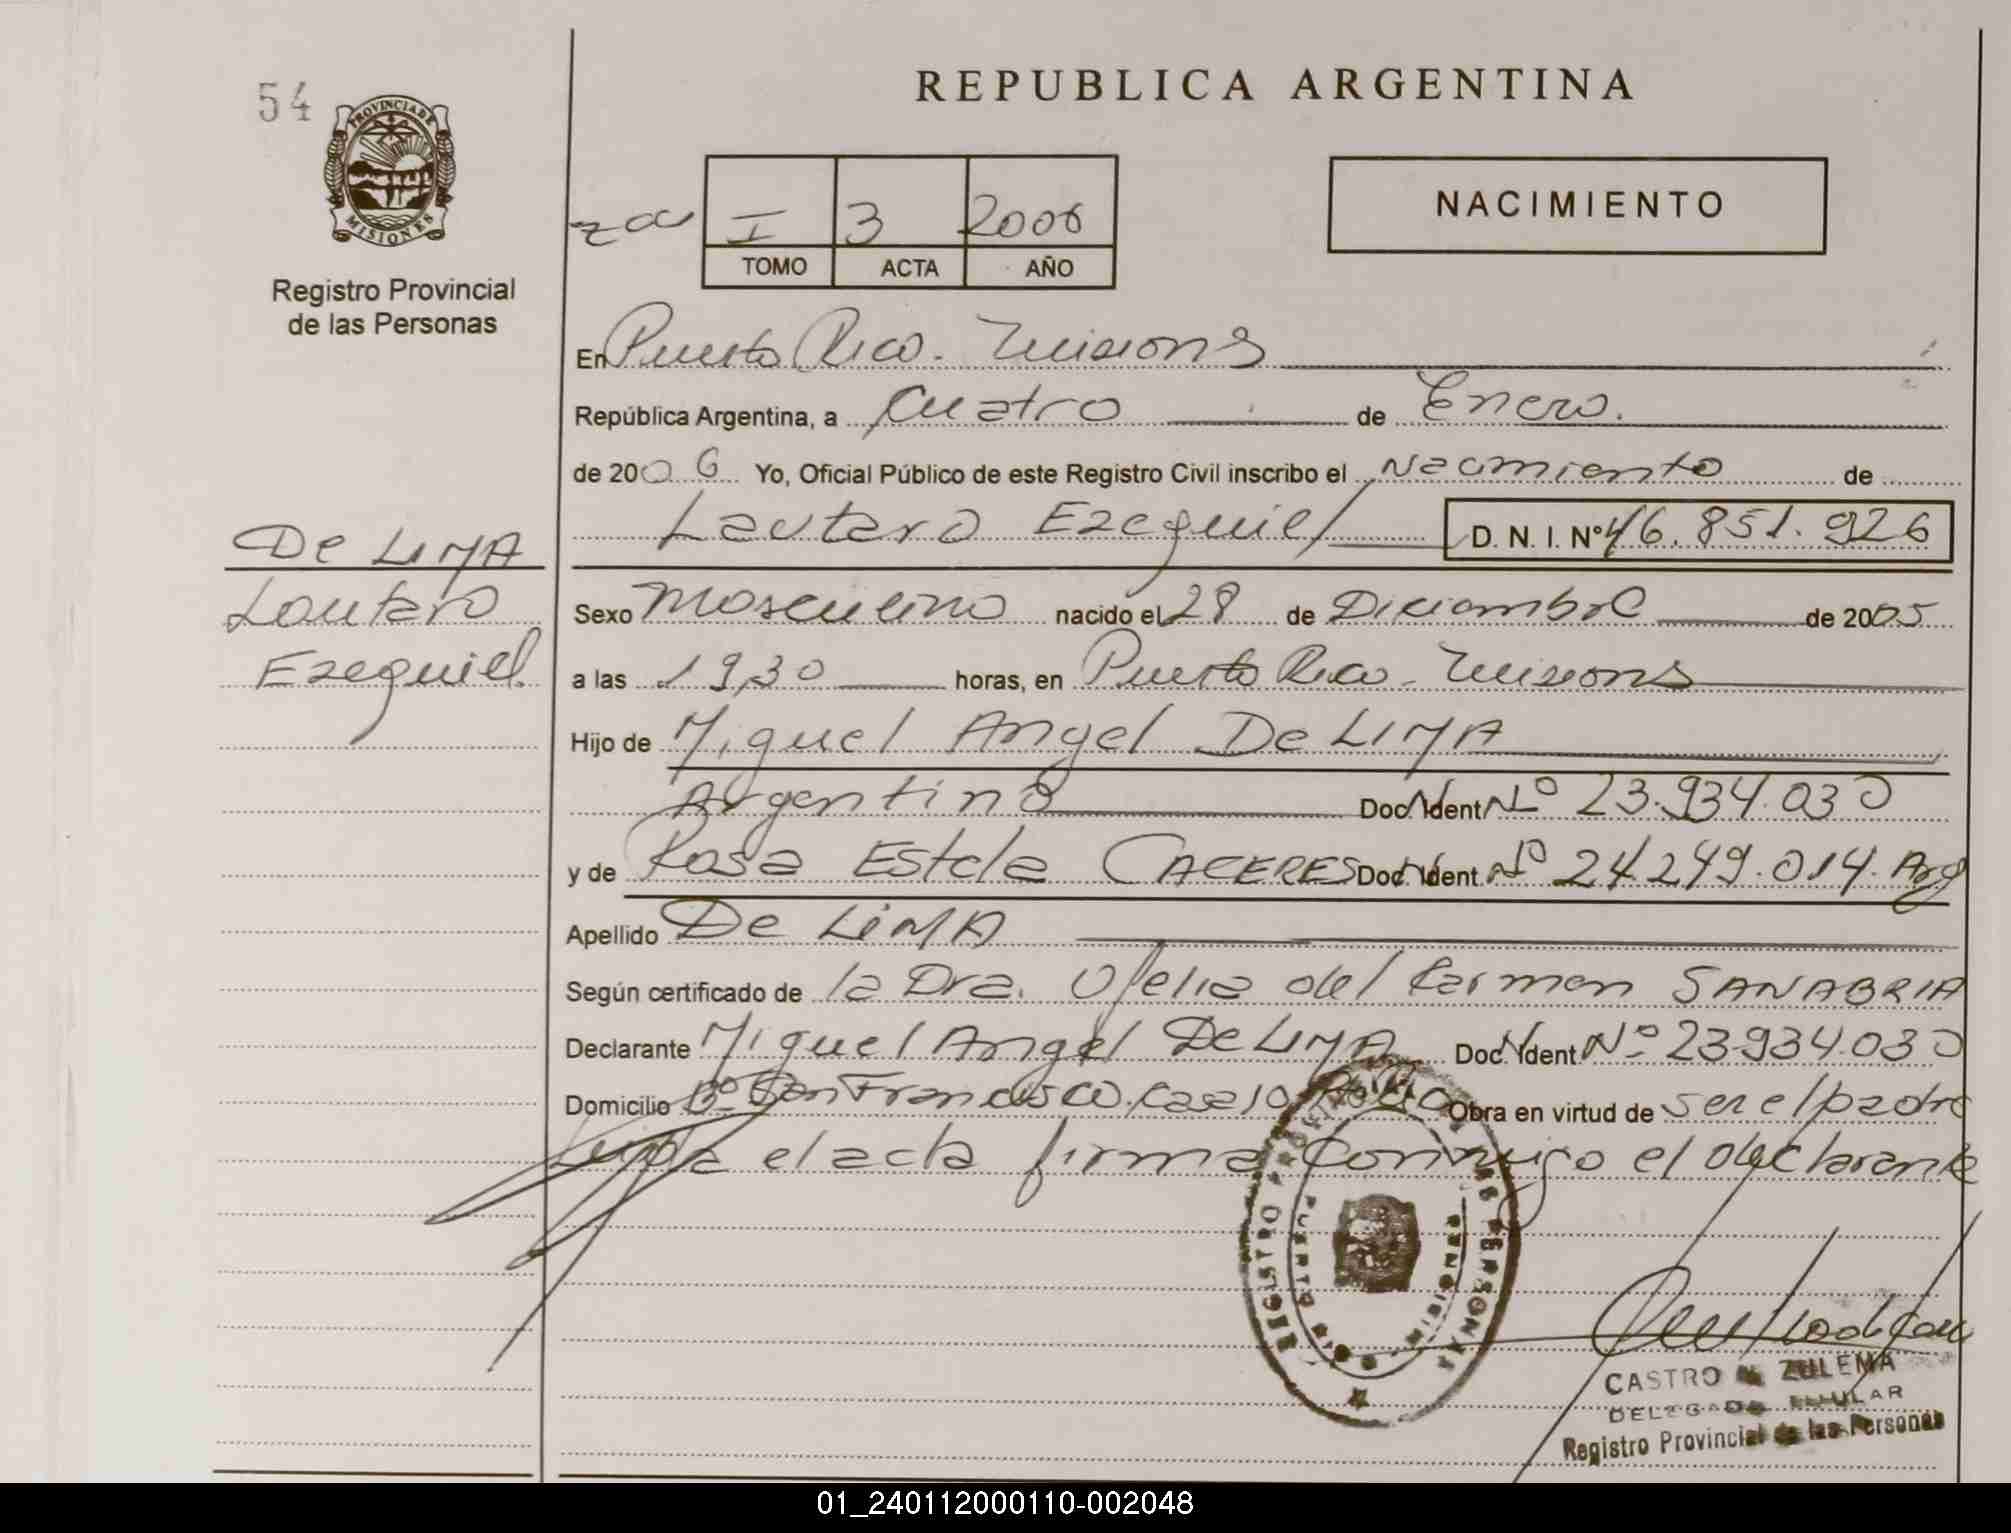 54
PROVINCIA DE
MISIONES
Registro Provincial
de las Personas
REPUBLICA ARGENTINA
I 3 2006
TOMO ACTA AÑO
NACIMIENTO
En Puerto Rico. Misiones
República Argentina, a Cuatro de Enero.
de 2006 Yo, Oficial Público de este Registro Civil inscribo el Nacimiento de
Lautaro Ezequiel D. N. I. Nº 46.851.926
De LIMA
Lautaro
Ezequiel
Sexo Masculino nacido el 28 de Diciembre de 2005
a las 19,30 horas, en Puerto Rico. Misiones
Hijo de Miguel Angel De LIMA
Argentino Doc. Ident Nº 23.934.030
y de Rosa Estela CACERES Doc. Ident. Nº 24.249.014. Arg
Apellido De LIMA
Según certificado de la Dra. Ofelia del Carmen SANABRIA
Declarante Miguel Angel De LIMA Doc. Ident Nº 23934.030
Domicilio Bº San Francisco. Casa 10 Obra en virtud de ser el padre
el acta firma conmigo el declarante
REGISTRO PROVINCIAL DE LAS PERSONAS
PUERTO RICO
MISIONES
CASTRO ZULEMA
DELEGADA TITULAR
Registro Provincial de las Personas
01_240112000110-002048